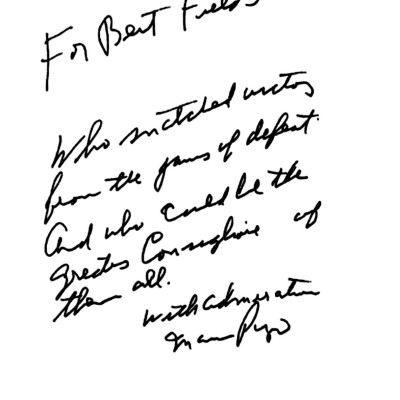 For Bert Fields
Who snatched victory
from the jaws of defeat.
And who could be the
greatest Consigliore of
them all.
With admiration
Mario Puzo